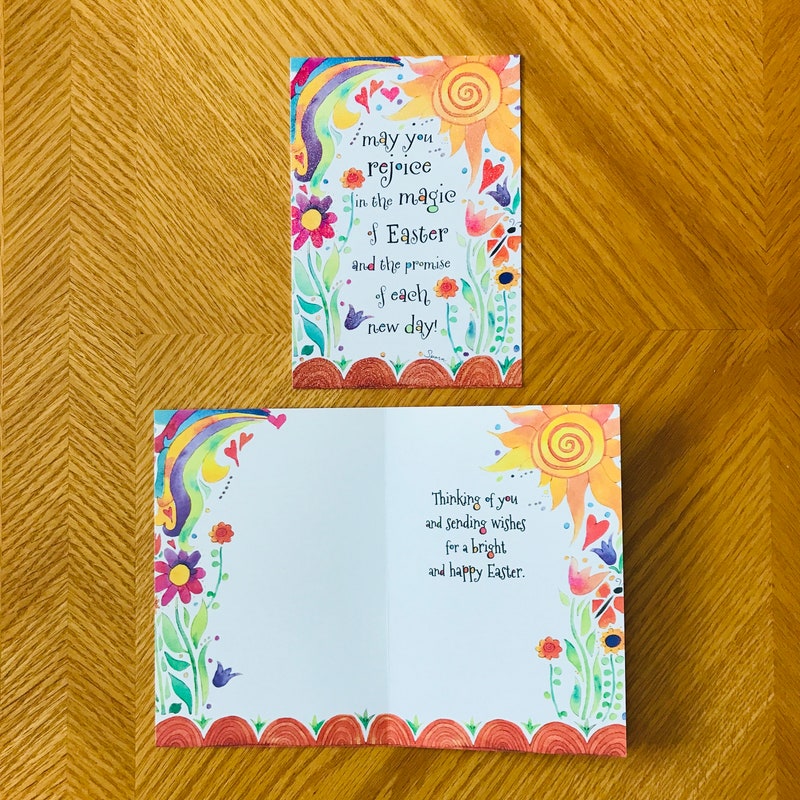 may you
rejoice
in the magic
of Easter
and the promise
of each
new day!
Thinking of you
and sending wishes
for a bright
and happy Easter.